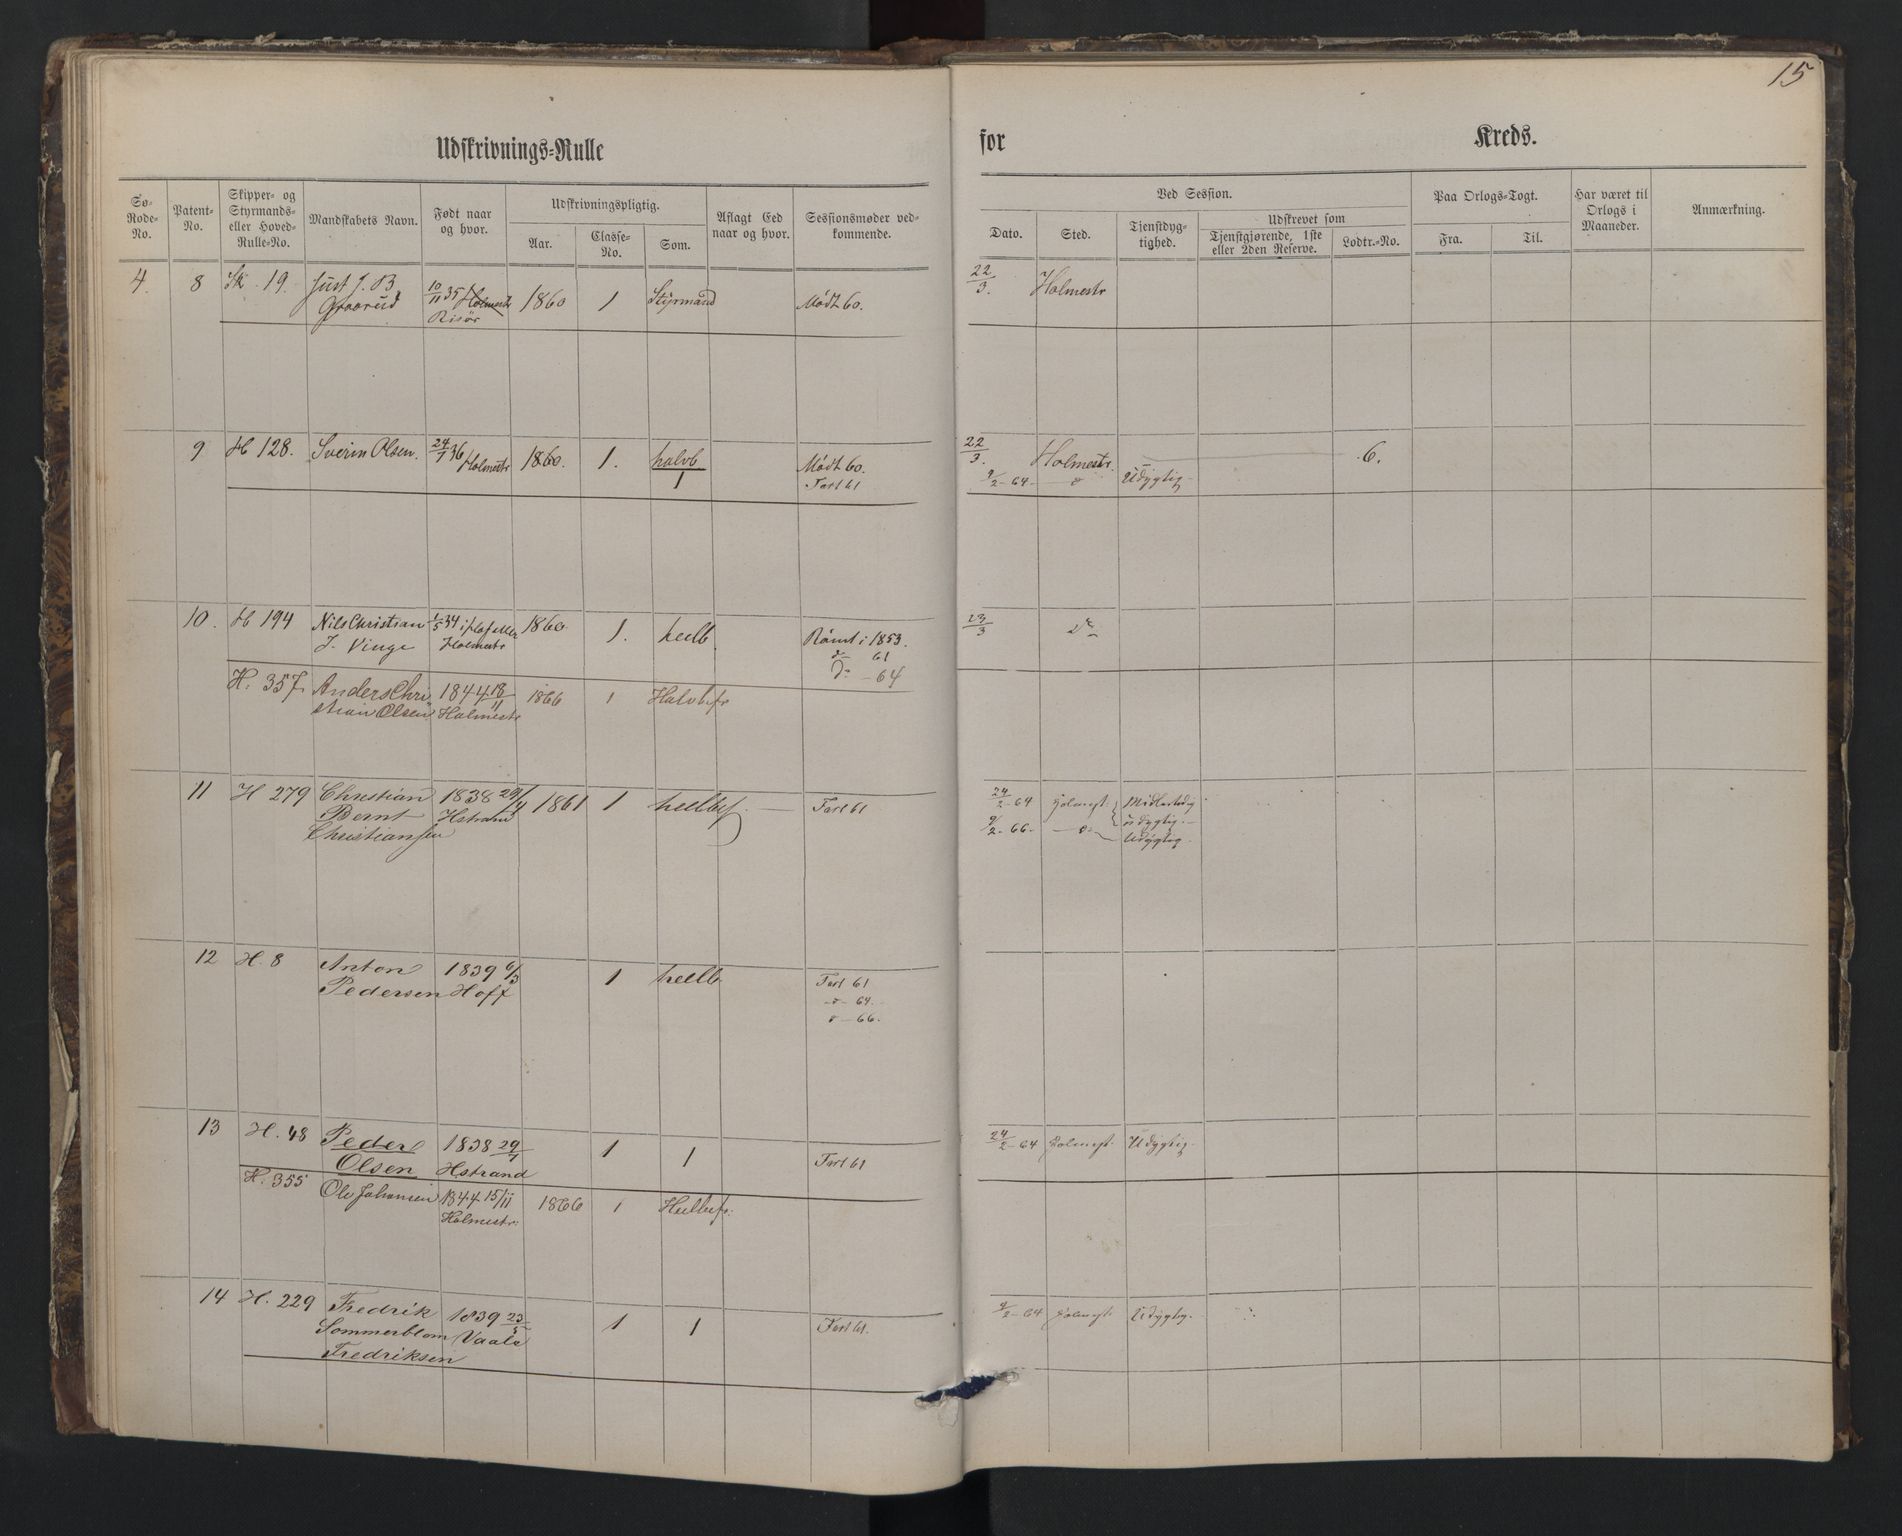 15
Udskrivnings-Rulle
for Kreds.
Sø-Rode-No. Patent-No. Skipper- og Styrmands- eller Hoved-Rulle-No. Mandskabets Navn. Født naar og hvor. Udskrivningspligtig. Aar. Classe-No. Som. Aflagt Eed naar og hvor. Sessionsmøder vedkommende.
Ved Session. Dato. Sted. Tjenstdygtighed. Udskrevet som Tjenstgjørende, 1ste eller 2den Reserve. Lodtr.-No. Paa Orlogs-Togt. Fra. Til. Har været til Orlogs i Maaneder. Anmærkning.
4 8 Sk. 19. Just J. B 10/11 35 Holmestr 1860 1 Styrmand Mødt 60. 22/3. Holmestr
Graarud Risør
9 H 128. Sverin Olsen. 24/7 36 Holmestr 1860. 1. halvb Mødt 60. 22/3. Holmestr. 6.
1 Fart 61 9/2 - 64 - - o - Udygtig -
10. H 194 Nils Christian 1/5 34 1860 1. heelb Rømt i 1853. 23/3 do
J. Vinge Holmestr do 61
do - 64
H. 357. Anders Chri 1844 18/11 1866 1 Halvbfr
stian Olsen Holmestr
11 H 279 Christian 1838 29/4 1861 1 heelbef Fart 61 24/2 - 64 Holmest. Midlertidig
Bernt Hstrand udygtig. -
Christiansen 9/2 - 66 - - o - Udygtig.
12 H. 8 Anton 1839 6/3 1 heelb Fart 61
Pedersen Hoff - o - 64.
o - 66.
13 H. 48 Peder 1838 29/7 1 1 Fart 61 24/2 - 64 Holmest. Udygtig.
Olsen Hstrand
H. 355 Ole Johansen 1844 15/11 1866 1 Heelbefr:
Holmestr:
14 H. 229 Fredrik 1839 23/5 1 1 Fart 61. 9/2 - 64 Holmest. Udygtig.
Sommerblom Vaale
Fredriksen